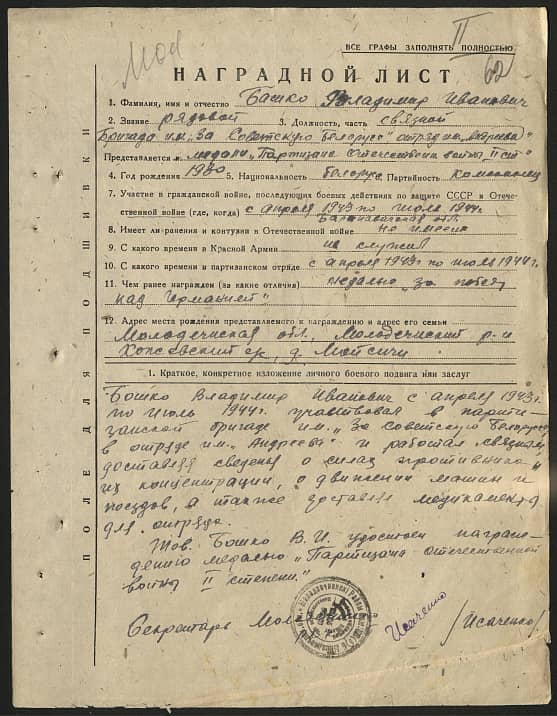 Мол
II
ВСЕ ГРАФЫ ЗАПОЛНЯТЬ ПОЛНОСТЬЮ
62
НАГРАДНОЙ ЛИСТ
1. Фамилия, имя и отчество Башко Владимир Иванович
2. Звание рядовой 3. Должность, часть связной
Бригада им. „За Советскую Белорусь" отряд им.
Представляется к медали „Партизану Отечественной войны II ст"
4. Год рождения 1930 5. Национальность белорус Партийность комсомолец
7. Участие в гражданской войне, последующих боевых действиях по защите СССР и Отече-
ственной войне (где, когда) с апреля 1943 по июль 1944г.
Барановичская обл.
8. Имеет ли ранения и контузии в Отечественной войне не имеет
9. С какого времени в Красной Армии не служил
10. С какого времени в партизанском отряде с апреля 1943г по июль 1944г.
11. Чем ранее награжден (за какие отличия) медалью „за победу
над Германией"
12. Адрес места рождения представляемого к награждению и адрес его семьи
Молодечнская обл., Молодечнский р-н
с/с, д. Мойсичи
1. Краткое, конкретное изложение личного боевого подвига или заслуг
Бошко Владимир Иванович с апреля 1943г.
по июль 1944г. участвовал в парти-
занской бригаде им. „За Советскую Белорусь"
в отряде им. „Андреева" и работал связным,
доставлял сведения о силах противника,
их концентрации, о движении машин и
поездов, а также доставлял медикаменты
для отряда.
Тов. Бошко В.И. удостоен награж-
дению медалью „Партизану отечественной
войны II степени."
Секретарь Исаченко /Исаченко/
ПОЛЕ ДЛЯ ПОДШИВКИ